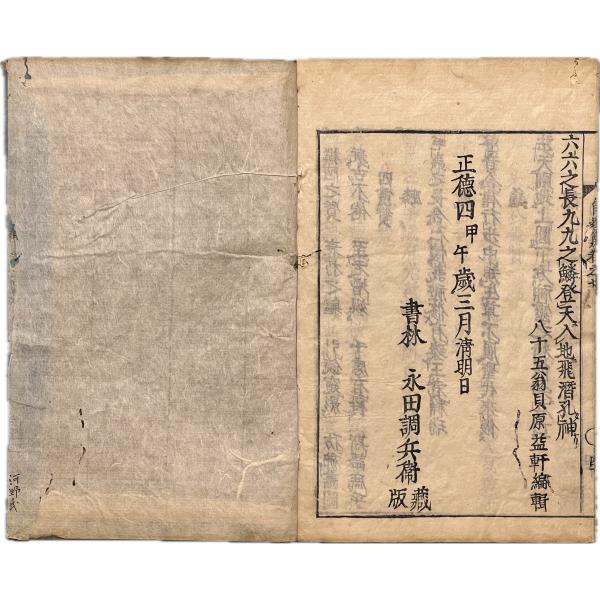 六六之長九九之鱗登天入地飛潛孔神
八十五翁貝原益軒編輯
正德四甲午歲三月清明日
書林 永田調兵衛藏版
河野氏